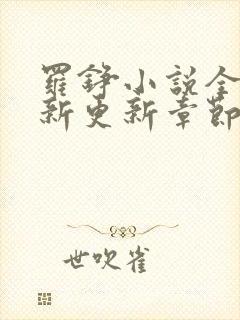 羅錚小說全
新更新章節
世吹雀